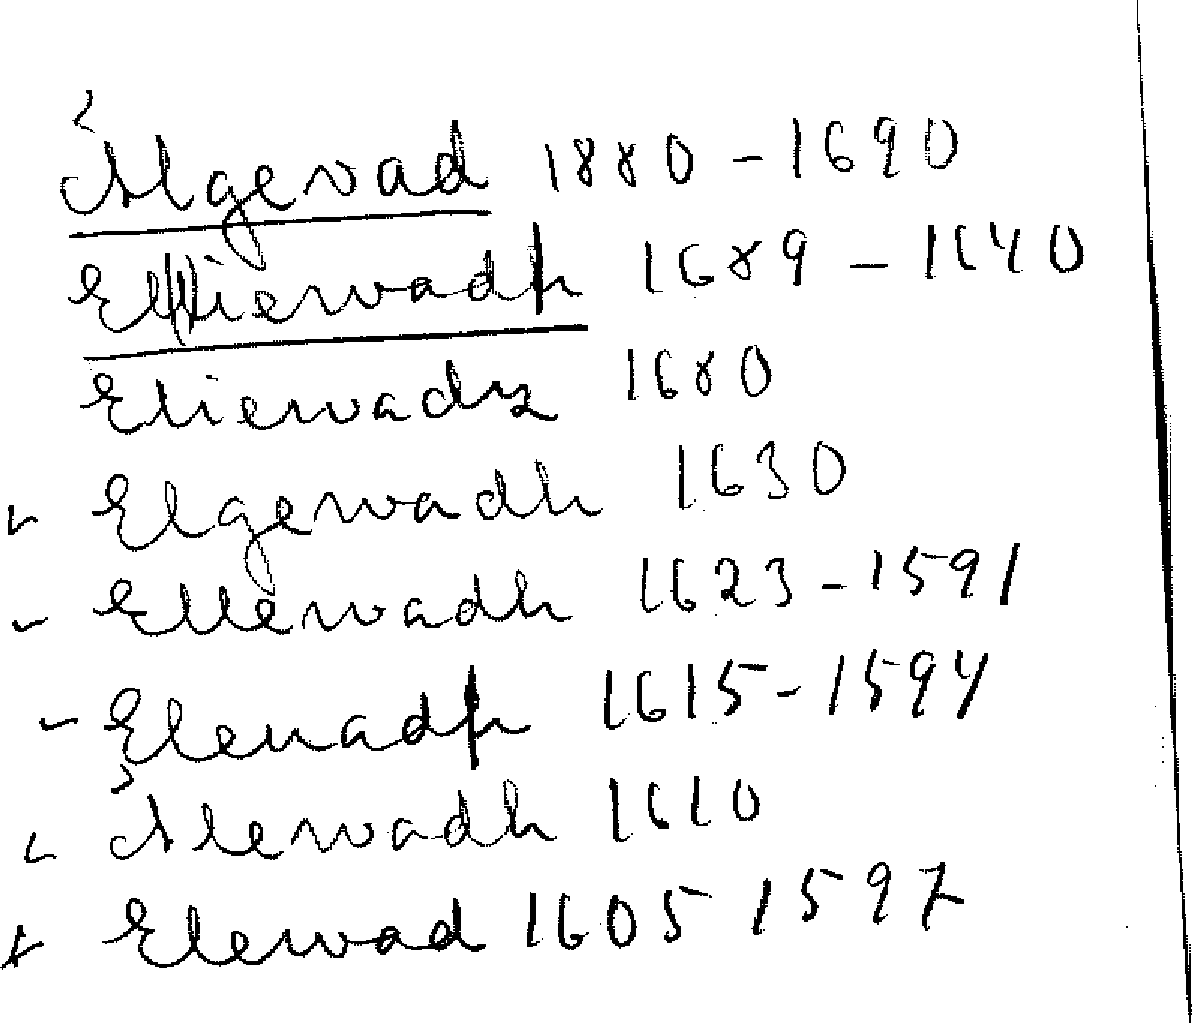 Älgevad 1880 - 1690
Elliewadh 1689 - 1640
Eliewadz 1680
Elgewadh 1630
Ellewadh 1623 - 1591
Elewadh 1615 - 1594
Älewadh 1610
Elewad 1605 1597